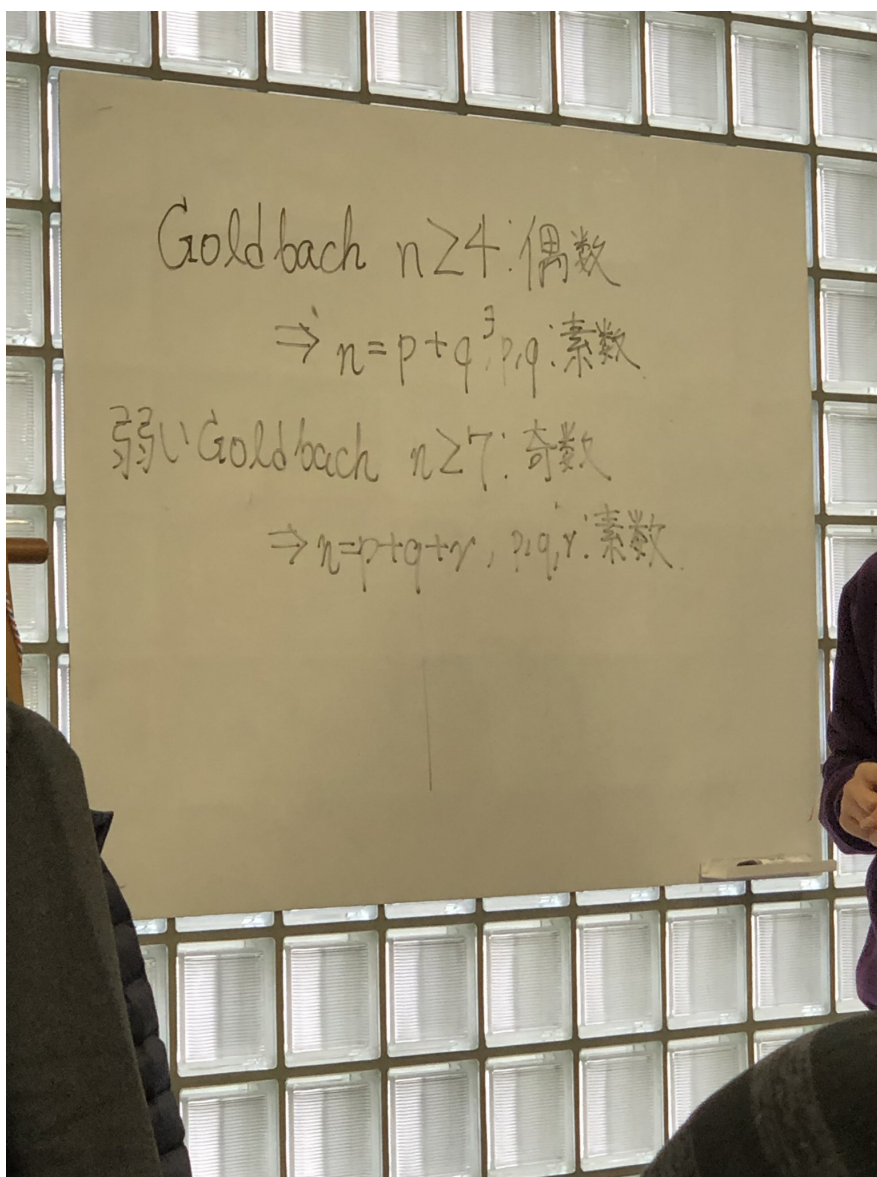 Goldbach n≥4:偶数
⇒ n=p+q³, p,q:素数
弱いGoldbach n≥7:奇数
⇒ n=p+q+r, p,q,r:素数.